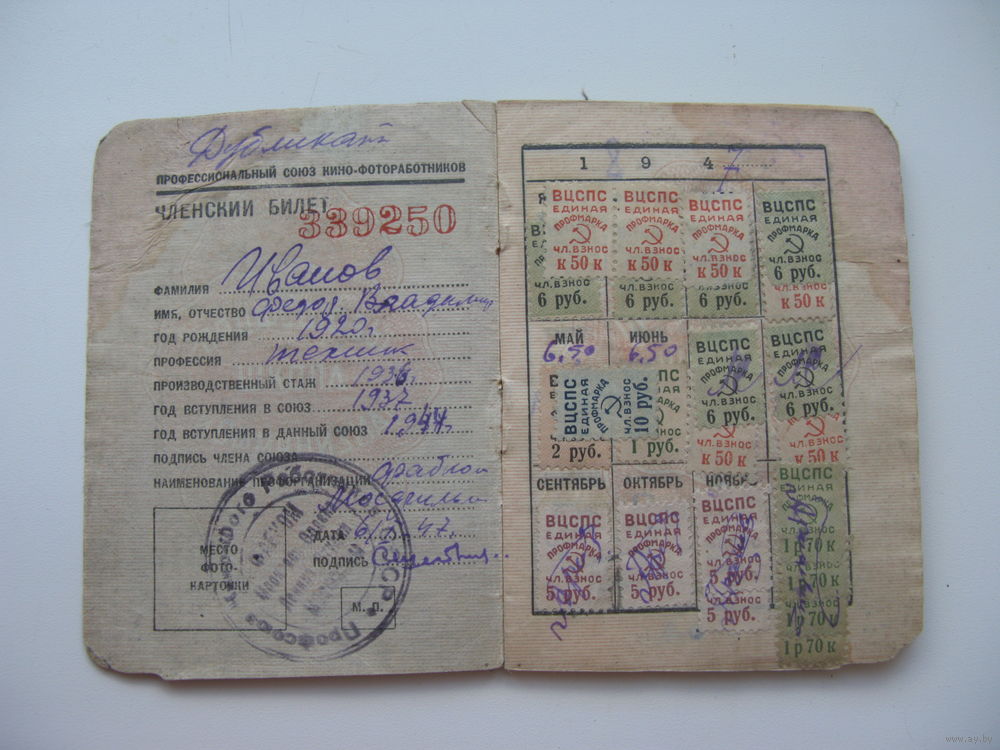 Дубликат
ПРОФЕССИОНАЛЬНЫЙ СОЮЗ КИНО-ФОТОРАБОТНИКОВ
ЧЛЕНСКИЙ БИЛЕТ
339250
ФАМИЛИЯ Иванов
ИМЯ, ОТЧЕСТВО Федор Владимир
ГОД РОЖДЕНИЯ 1920г.
ПРОФЕССИЯ техник
ПРОИЗВОДСТВЕННЫЙ СТАЖ 1936г.
ГОД ВСТУПЛЕНИЯ В СОЮЗ 1937
ГОД ВСТУПЛЕНИЯ В ДАННЫЙ СОЮЗ 1944г.
ПОДПИСЬ ЧЛЕНА СОЮЗА
НАИМЕНОВАНИЕ ПРОФОРГАНИЗАЦИИ
ДАТА 47г.
ПОДПИСЬ
МЕСТО
ФОТО-
КАРТОЧКИ
М. П.
1 9 4 7
ВЦСПС ВЦСПС ВЦСПС ВЦСПС
ЕДИНАЯ ЕДИНАЯ ЕДИНАЯ ЕДИНАЯ
ПРОФМАРКА ПРОФМАРКА ПРОФМАРКА ПРОФМАРКА
ЧЛ. ВЗНОС ЧЛ. ВЗНОС ЧЛ. ВЗНОС ЧЛ. ВЗНОС
К 50 К К 50 К К 50 К 6 руб.
6 руб. 6 руб. 6 руб. К 50 К
МАЙ ИЮНЬ
6,50 6,50
ВЦСПС ЕДИНАЯ ПРОФМАРКА ЧЛ. ВЗНОС 10 руб.
2 руб. 1 руб.
ВЦСПС ВЦСПС
ЕДИНАЯ ЕДИНАЯ
ПРОФМАРКА ПРОФМАРКА
ЧЛ. ВЗНОС ЧЛ. ВЗНОС
6 руб. 6 руб.
ЧЛ. ВЗНОС ЧЛ. ВЗНОС
К 50 К К 50 К
СЕНТЯБРЬ ОКТЯБРЬ НОЯБРЬ
ВЦСПС ВЦСПС ВЦСПС ВЦСПС
ЕДИНАЯ ЕДИНАЯ ЕДИНАЯ ЕДИНАЯ
ПРОФМАРКА ПРОФМАРКА ПРОФМАРКА
ЧЛ. ВЗНОС ЧЛ. ВЗНОС ЧЛ. ВЗНОС
5 руб. 5 руб. 5 руб. 1 р 70 к
5 руб. 1 р 70 к
1 р 70 к
1 р 70 к
www.ay.by